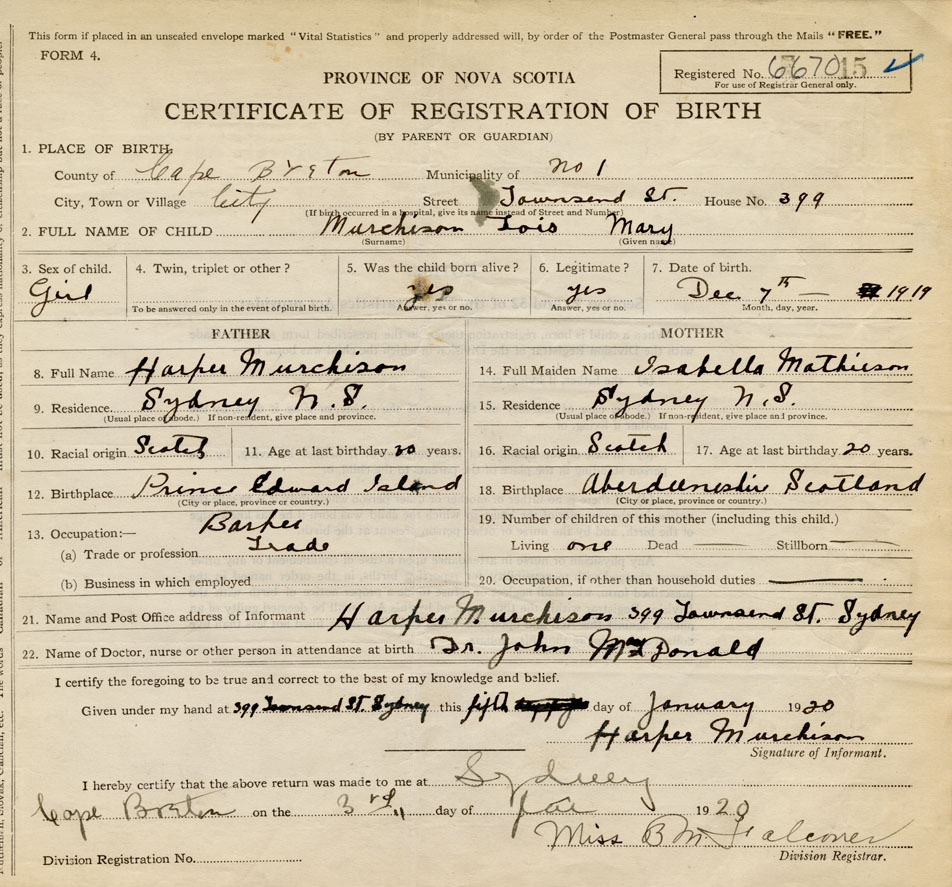 This form if placed in an unsealed envelope marked "Vital Statistics" and properly addressed will, by order of the Postmaster General pass through the Mails "FREE."
FORM 4.
Registered No. 667015
For use of Registrar General only.
PROVINCE OF NOVA SCOTIA
CERTIFICATE OF REGISTRATION OF BIRTH
(BY PARENT OR GUARDIAN)
1. PLACE OF BIRTH:
County of Cape Breton Municipality of No 1
City, Town or Village City Street Townsend St. House No. 399
(If birth occurred in a hospital, give its name instead of Street and Number)
2. FULL NAME OF CHILD Murchison Lois Mary
(Surname) (Given name)
3. Sex of child. 4. Twin, triplet or other? 5. Was the child born alive? 6. Legitimate? 7. Date of birth.
Girl yes yes Dec. 7th — 1919
To be answered only in the event of plural birth. Answer, yes or no. Answer, yes or no. Month, day, year.
FATHER MOTHER
8. Full Name Harper Murchison 14. Full Maiden Name Isabella Mathieson
9. Residence. Sydney N.S. 15. Residence Sydney N.S.
(Usual place of abode.) If non-resident, give place and province. (Usual place of abode.) If non-resident, give place and province.
10. Racial origin Scotch 11. Age at last birthday years. 16. Racial origin Scotch 17. Age at last birthday 20 years.
12. Birthplace Prince Edward Island 18. Birthplace Aberdeenshire Scotland
(City or place, province or country.) (City or place, province or country.)
13. Occupation:— Barber 19. Number of children of this mother (including this child.)
(a) Trade or profession Trade Living one Dead Stillborn
(b) Business in which employed 20. Occupation, if other than household duties
21. Name and Post Office address of Informant Harper Murchison 399 Townsend St. Sydney
22. Name of Doctor, nurse or other person in attendance at birth Dr. John McDonald
I certify the foregoing to be true and correct to the best of my knowledge and belief.
Given under my hand at 399 Townsend St. Sydney this fifth day of January 1920
Harper Murchison
Signature of Informant.
I hereby certify that the above return was made to me at Sydney
Cape Breton on the 3rd day of Jan 1920
Miss B M Falconer
Division Registrar.
Division Registration No.